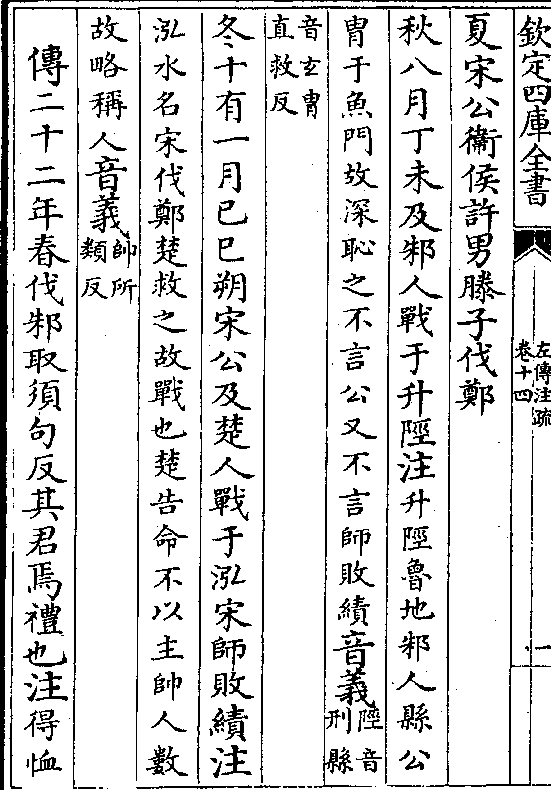 欽定四庫全書
左傳注疏
卷十四
一
夏宋公衞侯許男滕子伐鄭
秋八月丁未及邾人戰于升陘注升陘魯地邾人縣公
冑于魚門故深恥之不言公又不言師敗績音義陘音
刑縣
音玄冑
直救反
冬十有一月已巳朔宋公及楚人戰于泓宋師敗績注
泓水名宋伐鄭楚救之故戰也楚告命不以主帥人數
故略稱人音義帥所
類反
傳二十二年春伐邾取須句反其君焉禮也注得恤